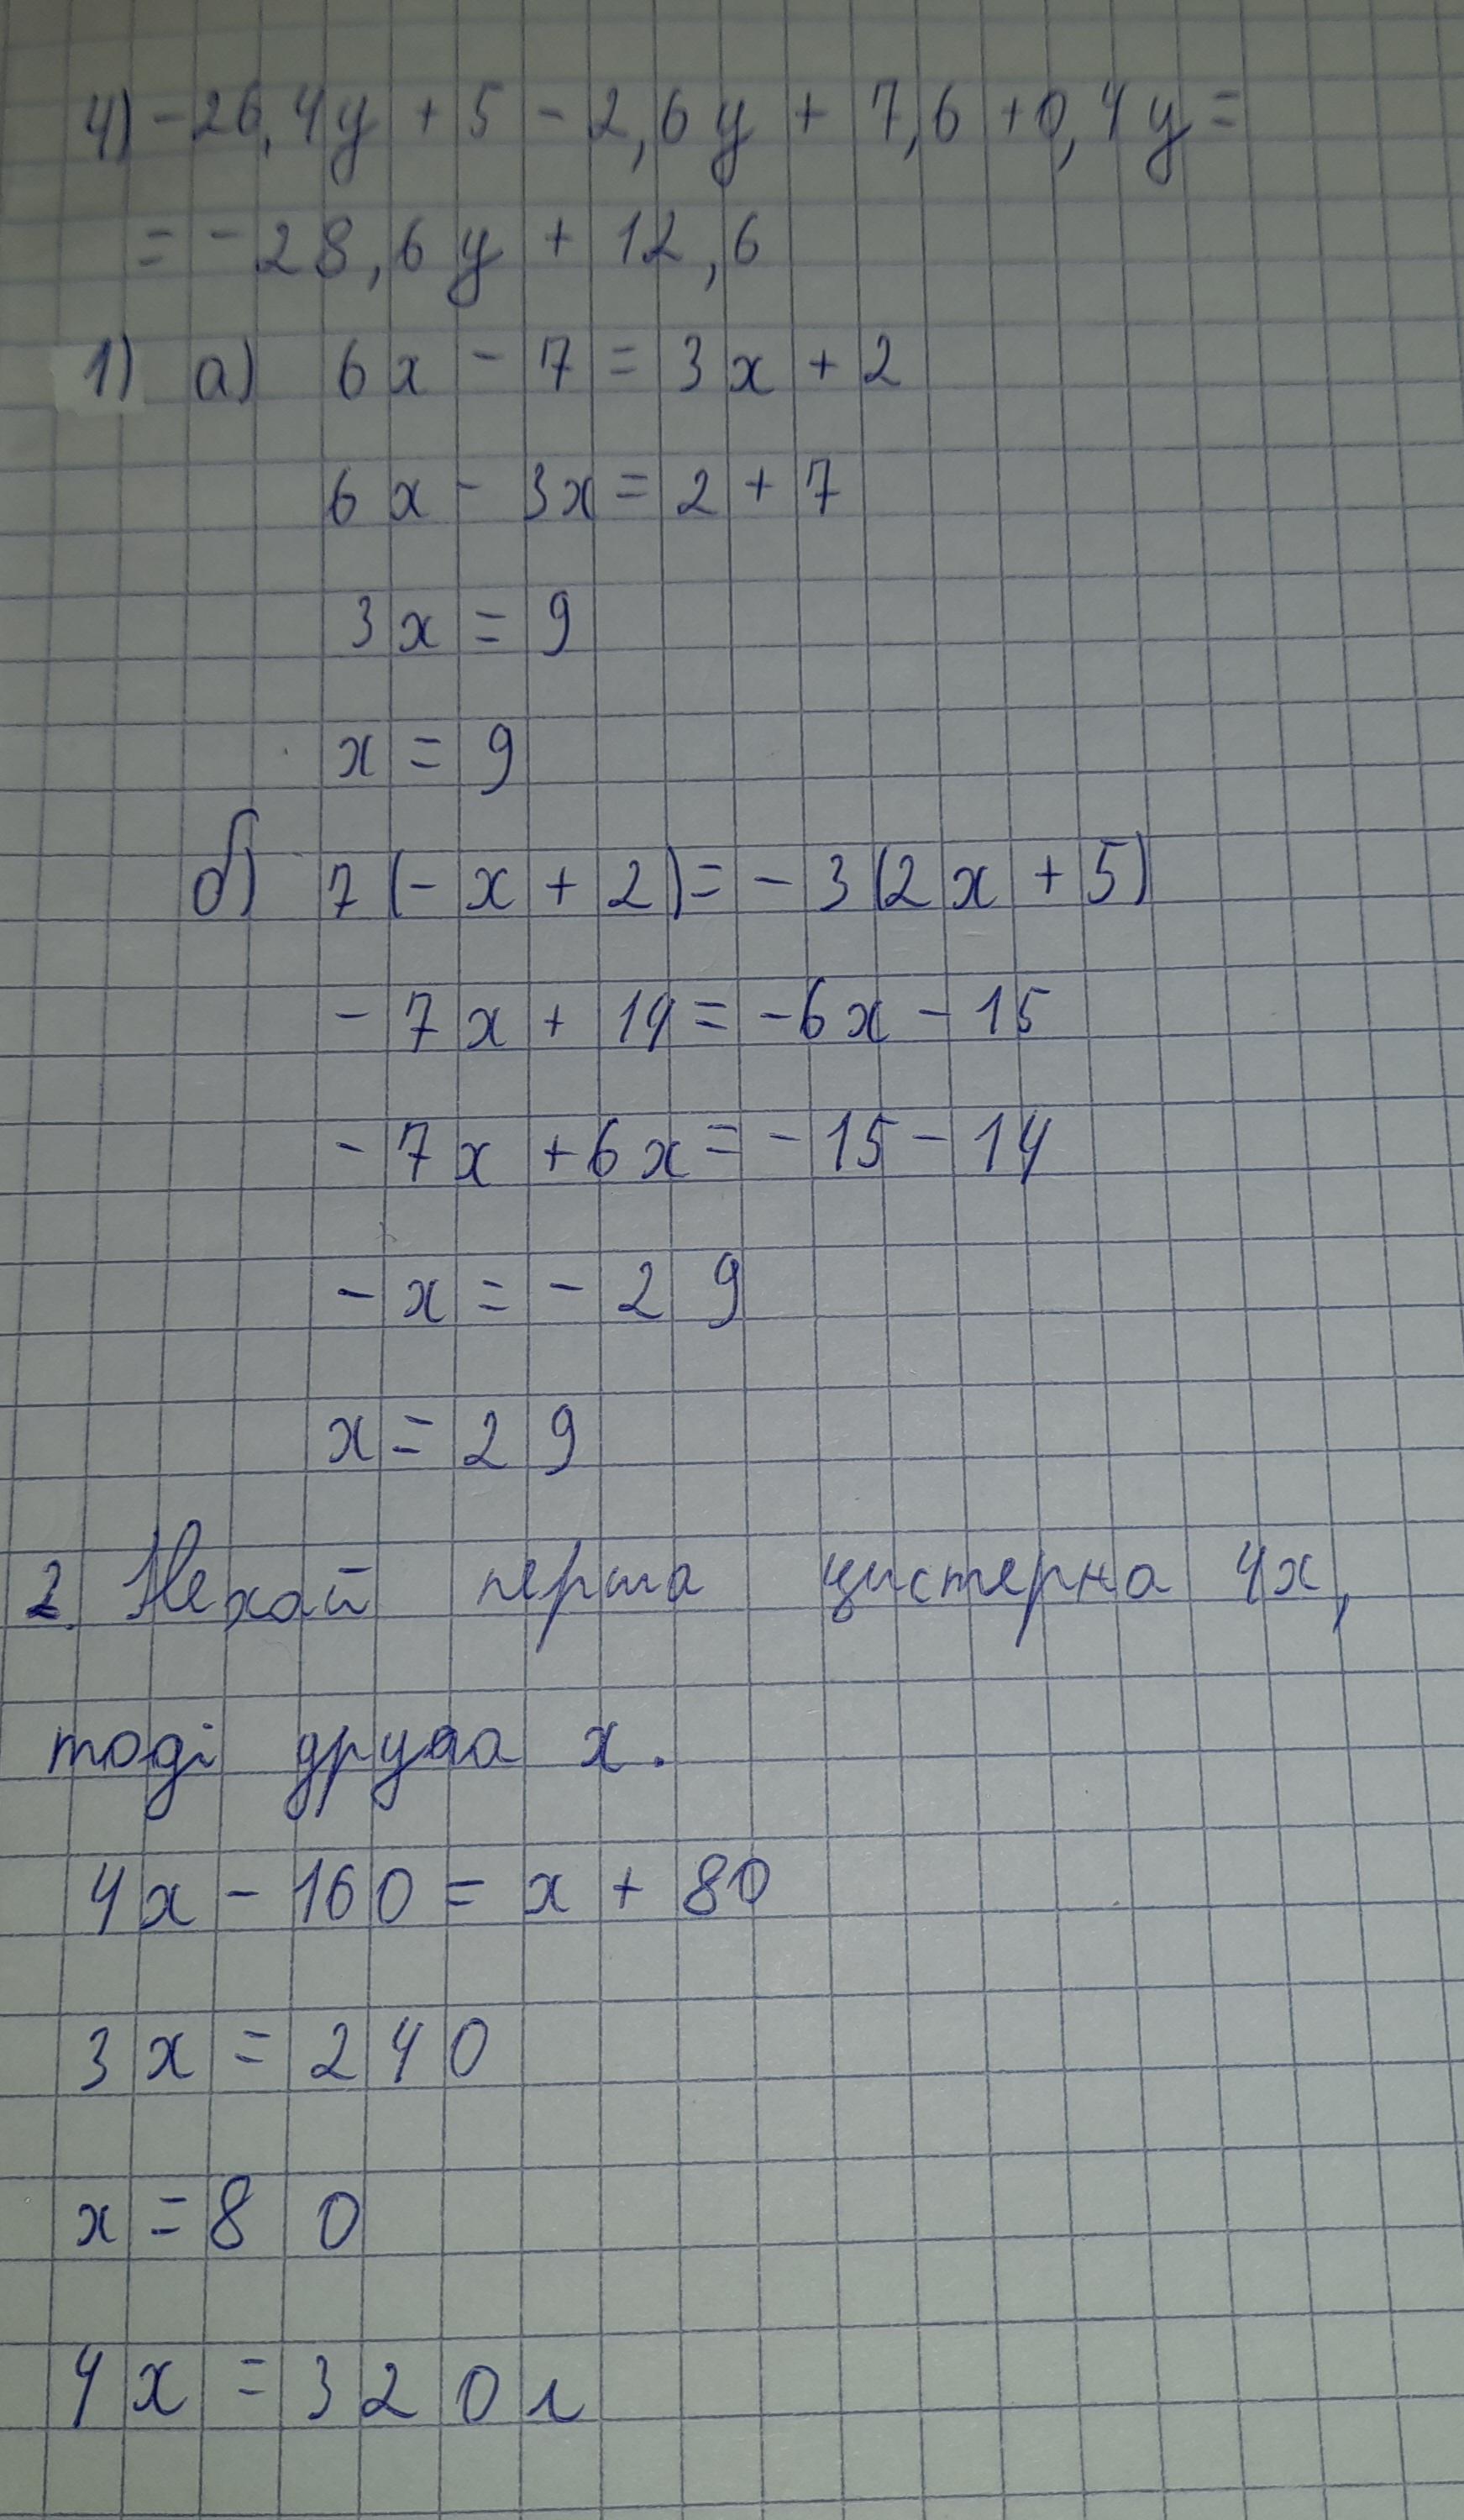 4) -26,4y + 5 - 2,6y + 7,6 + 0,4y =
= -28,6y + 12,6
1) а) 6x - 7 = 3x + 2
6x - 3x = 2 + 7
3x = 9
x = 9
б) 7(-x + 2) = -3(2x + 5)
-7x + 14 = -6x - 15
-7x + 6x = -15 - 14
-x = -29
x = 29
2. Нехай перша цистерна 4x,
тоді друга x.
4x - 160 = x + 80
3x = 240
x = 80
4x = 320 л